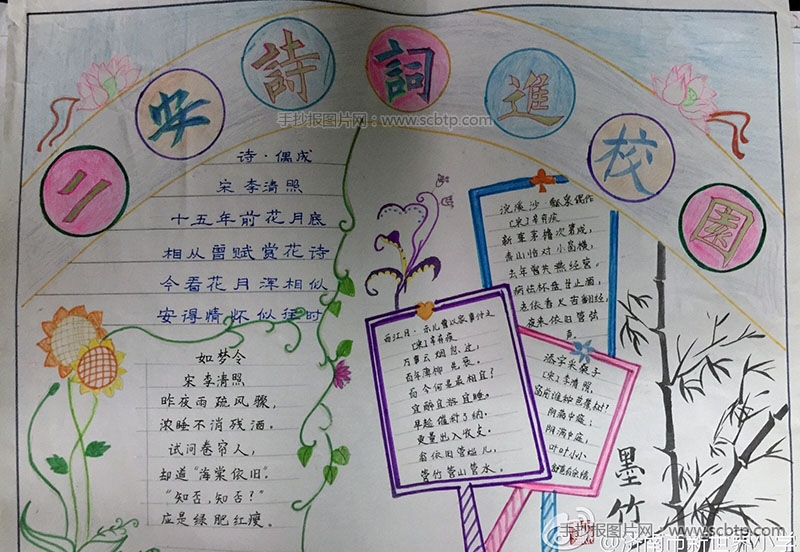 二安詩詞進校園
手抄报图片网：www.scbtp.com
诗·偶成
宋 李清照
十五年前花月底
相从曾赋赏花诗
今看花月浑相似
安得情怀似往时
如梦令
宋 李清照
昨夜雨疏风骤，
浓睡不消残酒。
试问卷帘人，
却道“海棠依旧。”
“知否，知否？”
应是绿肥红瘦。
西江月·示儿曹以家事付之
[宋]辛弃疾
万事云烟忽过，
百年蒲柳先衰。
而今何事最相宜？
宜醉宜游宜睡。
早趁催科了纳，
更量出入收支。
乃翁依旧管些儿，
管竹管山管水。
浣溪沙·瓢泉偶作
[宋]辛弃疾
新葺茅檐次第成，
青山恰对小窗横，
去年曾共燕经营。
病怯杯盘甘止酒，
老依香火苦翻经，
夜来依旧管弦
声。
添字采桑子
[宋]李清照
窗前谁种芭蕉树？
阴满中庭；
阴满中庭，
叶叶心心
舒卷有余情。
墨竹
手抄报图片网：www.scbtp.com
@济南市新世界小学